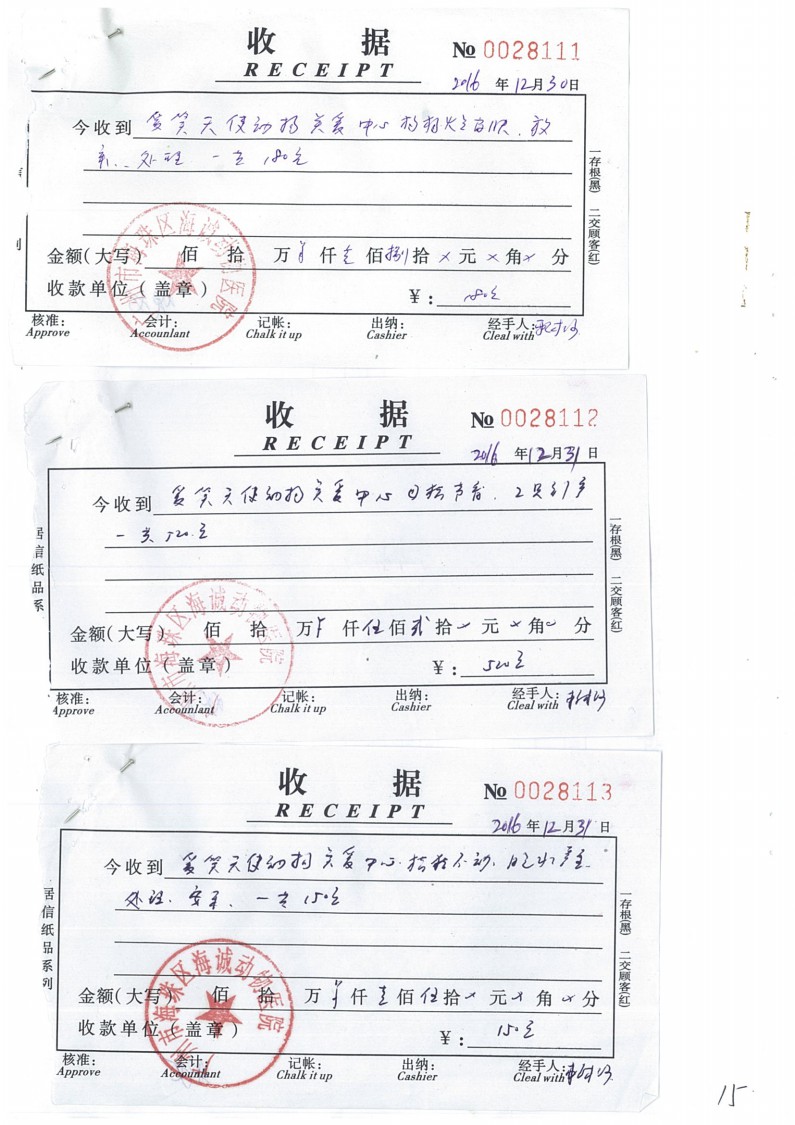 收 据
RECEIPT
№ 0028111
2016 年 12 月 30 日
今收到 爱笑天使动物关爱中心
处理 一共 180元
金额(大写) 佰 拾 万 ¥ 仟 壹 佰 捌 拾 × 元 × 角 × 分
收款单位(盖章) ¥: 180元
广州市海珠区海诚动物医院
核准: 会计: 记帐: 出纳: 经手人:
Approve Accounlant Chalk it up Cashier Cleal with
一存根(黑) 二交顾客(红)
收 据
RECEIPT
№ 0028112
2016 年 12 月 31 日
今收到 爱笑天使动物关爱中心
一共 520元
金额(大写) 佰 拾 万 ¥ 仟 伍 佰 贰 拾 × 元 × 角 × 分
收款单位(盖章) ¥: 520元
广州市海珠区海诚动物医院
核准: 会计: 记帐: 出纳: 经手人:
Approve Accounlant Chalk it up Cashier Cleal with
居信纸品系
一存根(黑) 二交顾客(红)
收 据
RECEIPT
№ 0028113
2016 年 12 月 31 日
今收到 爱笑天使动物关爱中心
处理、安乐、一共 150元
金额(大写) 佰 拾 万 ¥ 仟 壹 佰 伍 拾 × 元 × 角 × 分
收款单位(盖章) ¥: 150元
广州市海珠区海诚动物医院
核准: 会计: 记帐: 出纳: 经手人:
Approve Accounlant Chalk it up Cashier Cleal with
居信纸品系列
一存根(黑) 二交顾客(红)
15